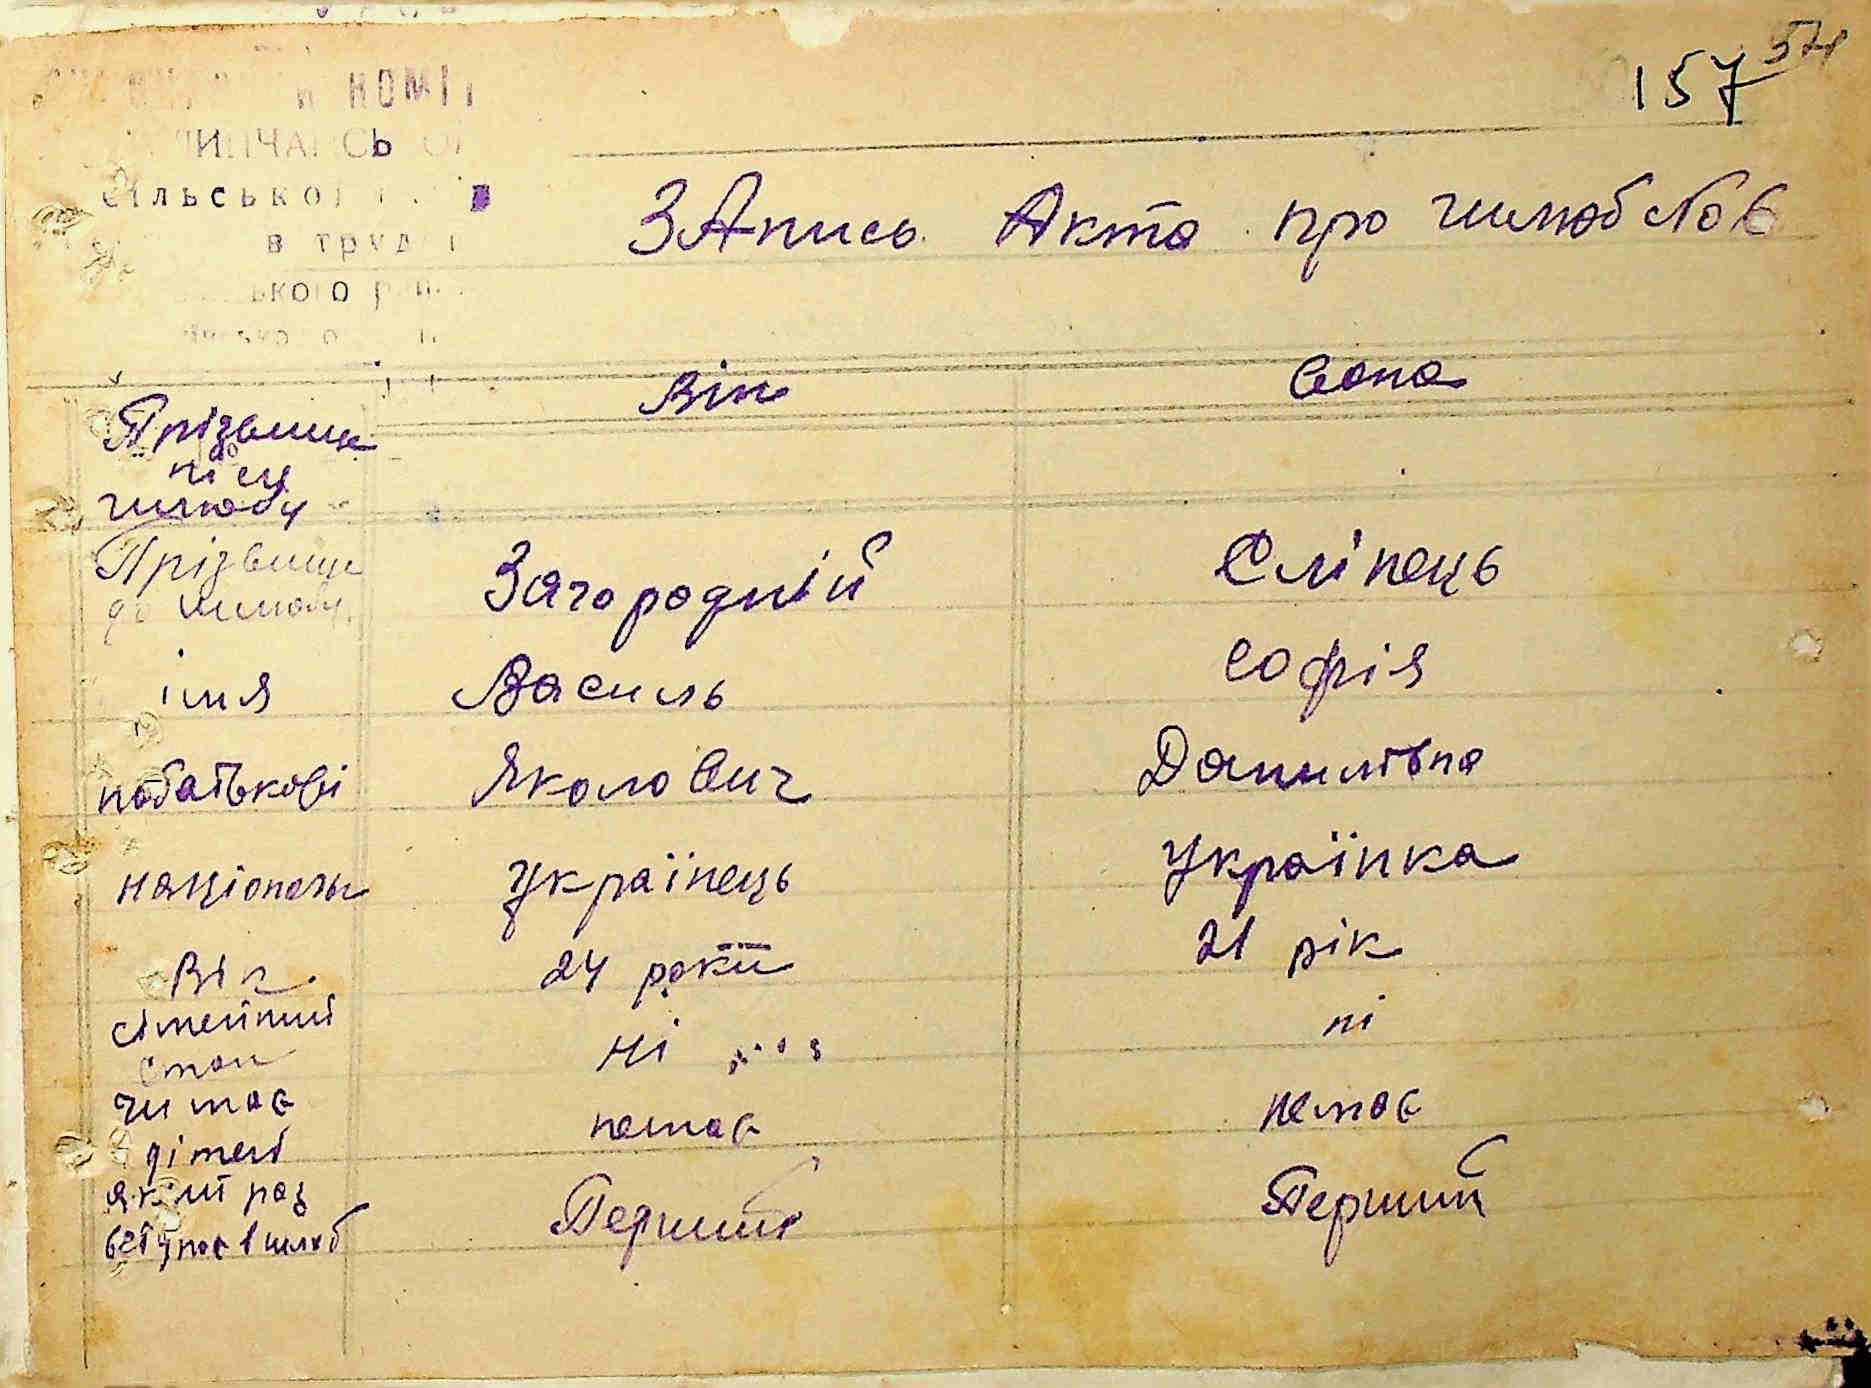 157
КОМІ
сільської
в труд
ЗАпись Акта про
Він Вона
Прізвище
Прізвище
до
Загородній Сліпець
імя Василь Софія
побатькові Яколович Данилівна
національ українець Українка
Вік 24 роки 21 рік
сімейний
стан ні ні
чи має
дітей немає немає
який раз
вступає в шлюб Перший Перший